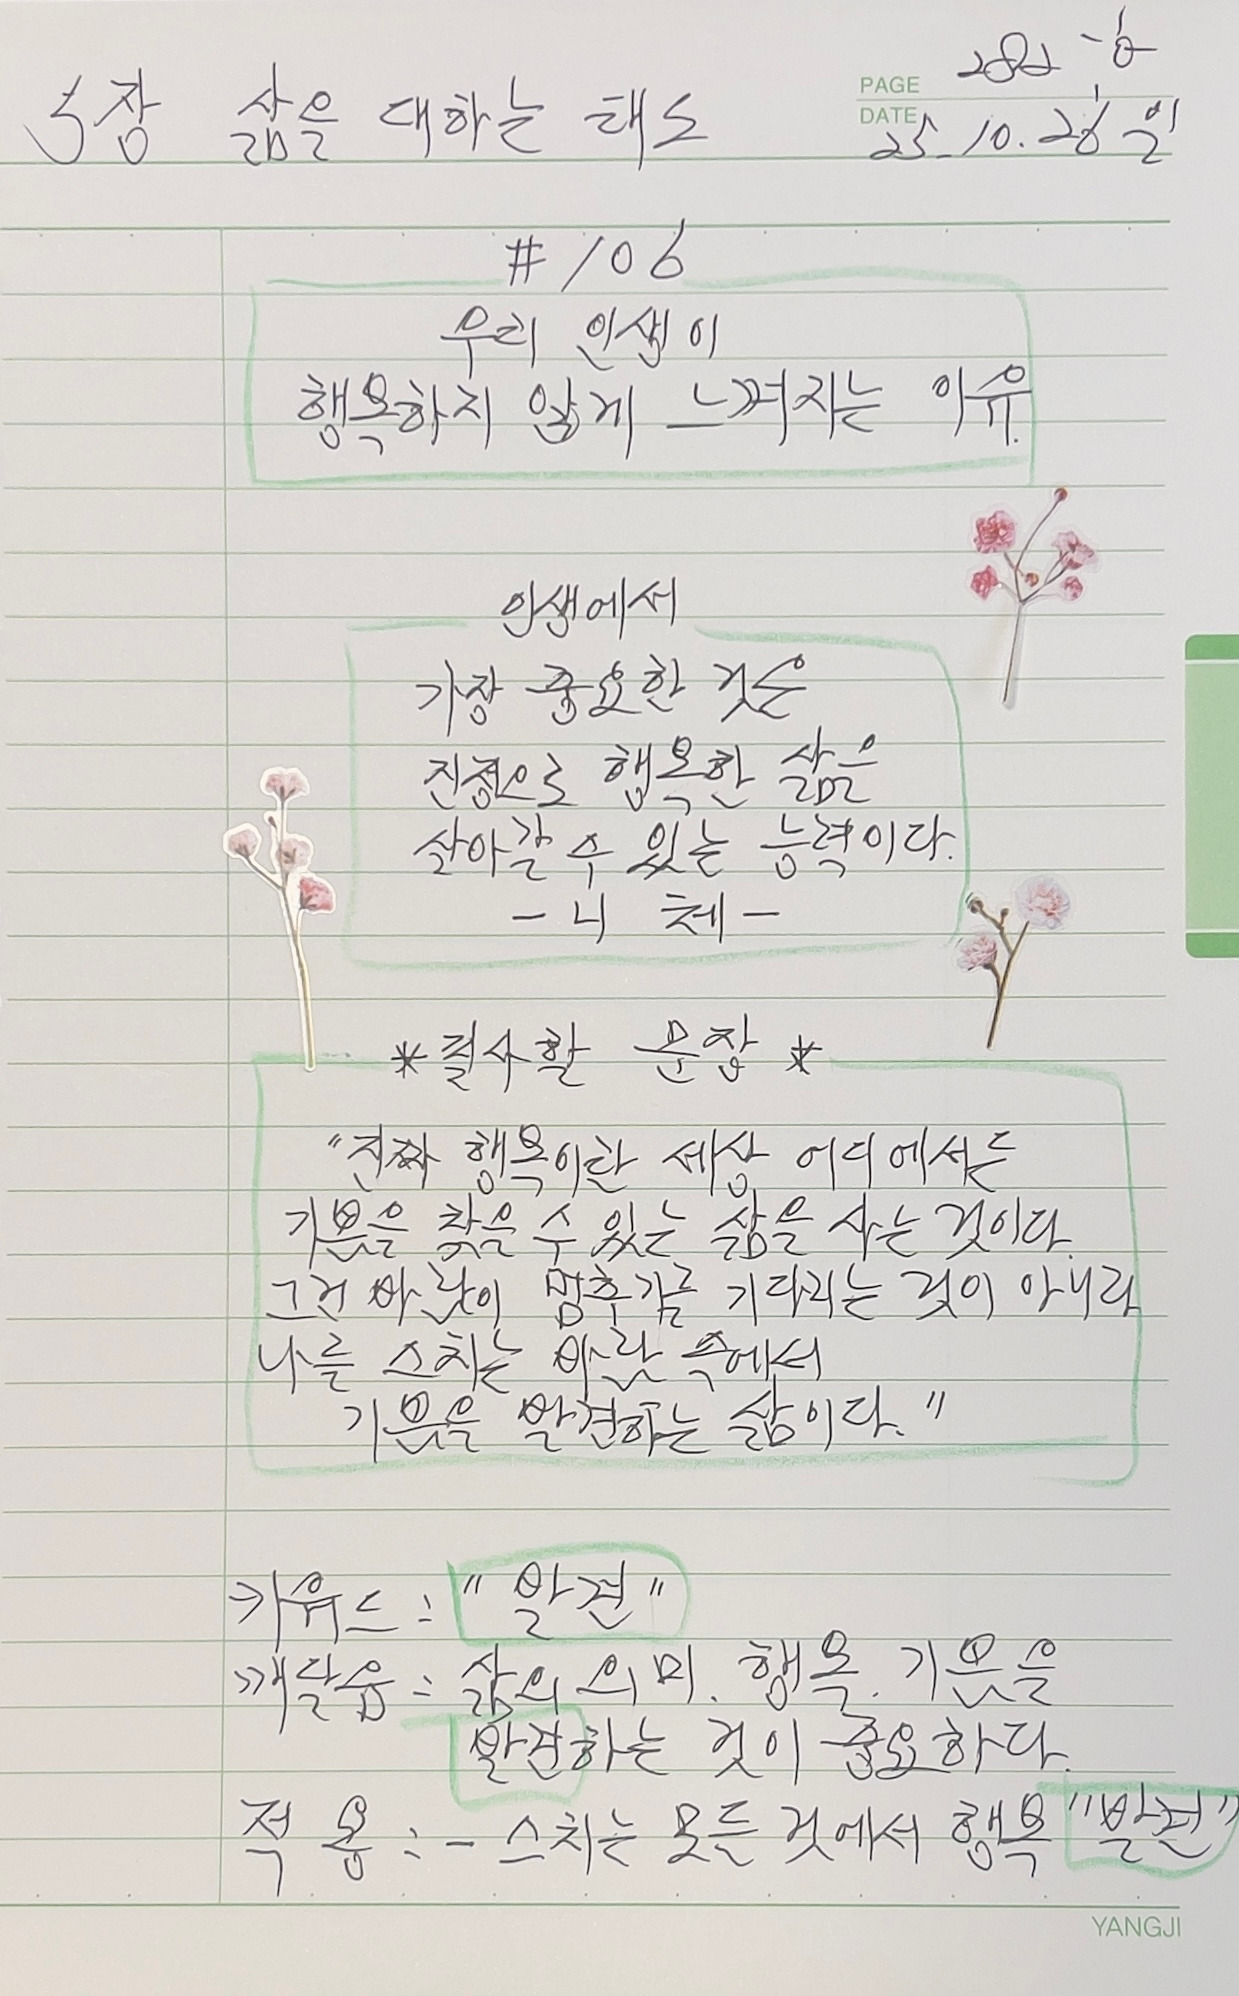 PAGE
DATE 25.10.26 일
5장 삶을 대하는 태도
#106
우리 인생이
행복하지 않게 느껴지는 이유.
인생에서
가장 중요한 것은
진정으로 행복한 삶을
살아갈 수 있는 능력이다.
- 니 체 -
*필사할 문장*
"진짜 행복이란 세상 어디에서든
기쁨을 찾을 수 있는 삶을 사는 것이다.
그건 바람이 멈추길 기다리는 것이 아니라
나를 스치는 바람 속에서
기쁨을 발견하는 삶이다."
키워드 : "발견"
깨달음 : 삶의 의미. 행복. 기쁨을
발견하는 것이 중요하다.
적 용 : - 스치는 모든 것에서 행복 "발견"
YANGJI